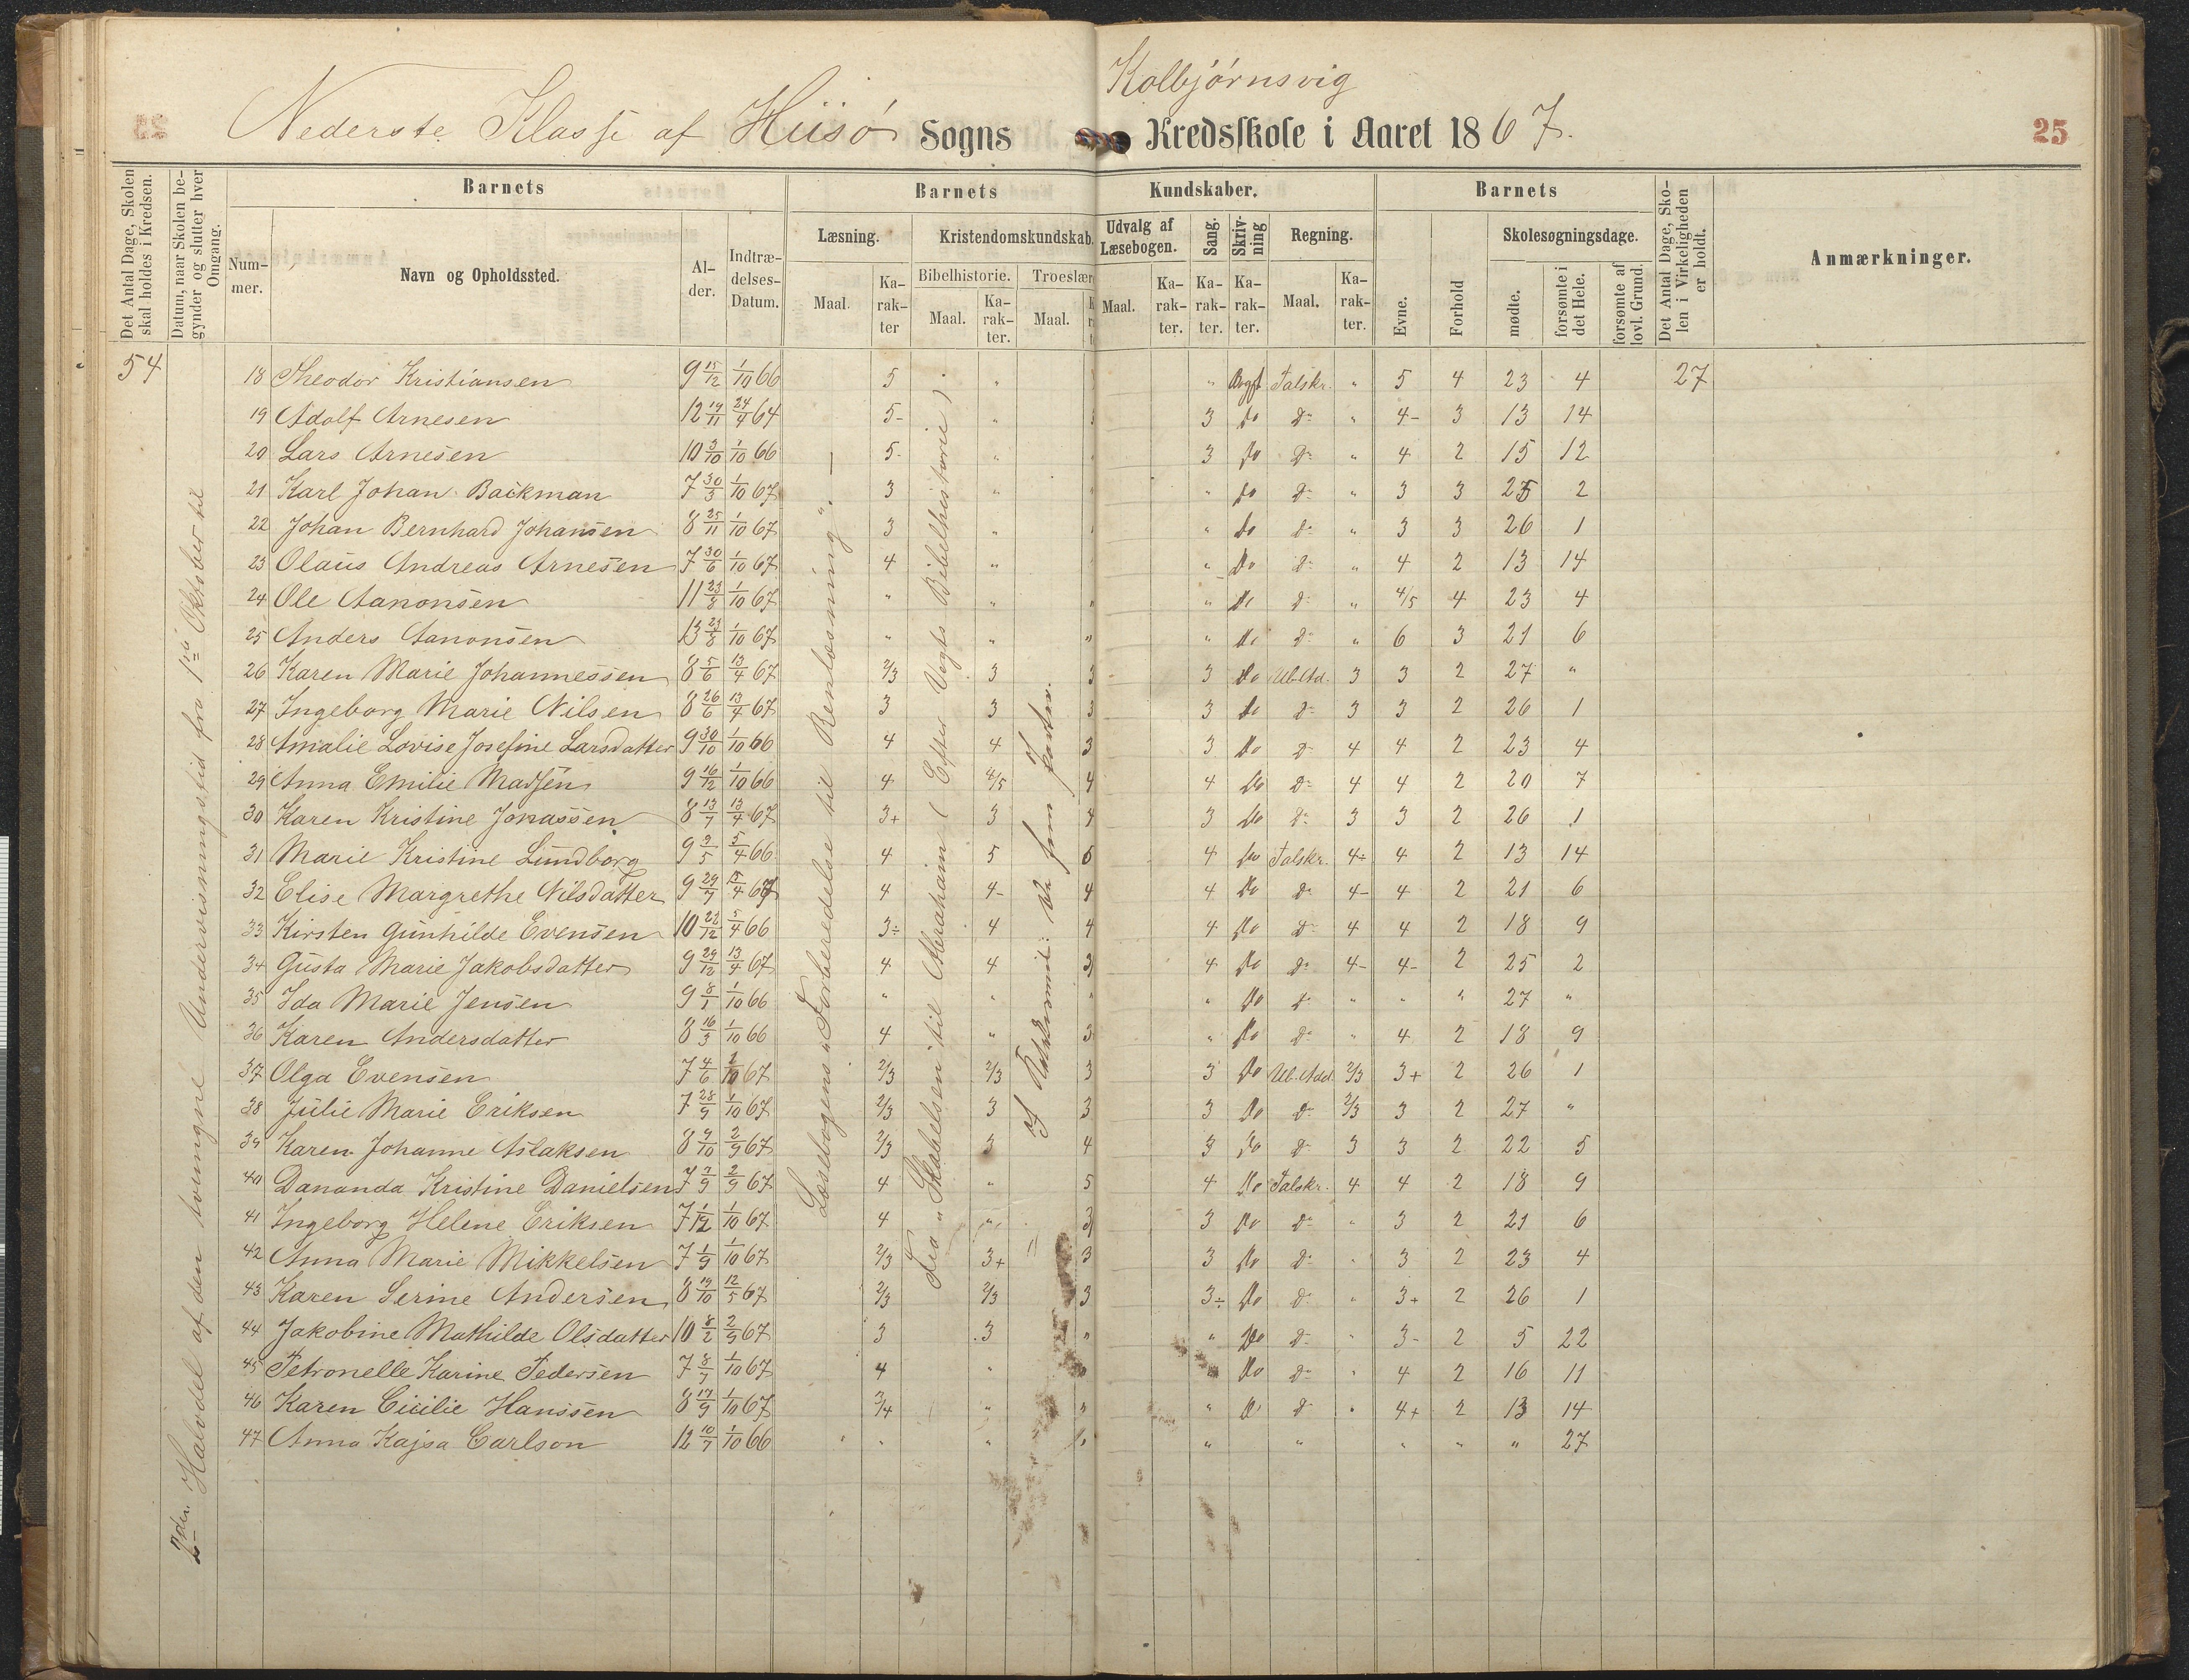 Kolbjörnsvig
Nederste Klasse af Hiisö Sogns Kredsskole i Aaret 1867.
25
Det Antal Dage, Skolen skal holdes i Kredsen.
Datum, naar Skolen begynder og slutter hver Omgang.
Barnets
Barnets
Kundskaber.
Barnets
Det Antal Dage, Skolen i Virkeligheden er holdt.
Anmærkninger.
Nummer.
Navn og Opholdssted.
Alder.
Indtrædelses-Datum.
Læsning.
Kristendomskundskab.
Udvalg af Læsebogen.
Sang.
Skrivning
Regning.
Evne.
Forhold
Skolesøgningsdage.
Maal.
Karakter
Bibelhistorie.
Troeslær
Maal.
Karakter.
Maal.
Maal.
Karakter.
Karakter.
Karakter.
Maal.
Karakter.
mødte.
forsømte i det Hele.
forsømte af lovl. Grund.
54
2den Halvdel af den tvungne Undervisningstid fra 1ste Oktober til
Læsebogens "Forberedelse til Renlæsning".
Fra "Skabelsen" til Abraham (Efter Vogts Bibelhistorie)
18 Theodor Kristiansen 9 15/12 1/10 66 5 " " Bogst Talskr. " 5 4 23 4 27
19 Adolf Arnesen 12 19/11 24/9 64 5- " 3 Do Do " 4- 3 13 14
20 Lars Arnesen 10 3/10 1/10 66 5- " 3 Do Do " 4 2 15 12
21 Karl Johan Backman 7 30/3 1/10 67 3 " " Do Do " 3 3 25 2
22 Johan Bernhard Johansen 8 25/11 1/10 67 3 " " Do Do " 3 3 26 1
23 Olaus Andreas Arnesen 7 30/6 1/10 67 4 " " Do Do " 4 2 13 14
24 Ole Aanonsen 11 23/8 1/10 67 " " " " Do Do " 4/5 4 23 4
25 Anders Aanonsen 13 23/8 1/10 67 " " " " Do Do " 6 3 21 6
26 Karen Marie Johannessen 8 5/6 13/4 67 2/3 3 3 3 Do Ub.Ad. 3 3 2 27 "
27 Ingeborg Marie Nilsen 8 26/6 13/4 67 3 3 3 3 Do Do 3 3 2 26 1
28 Amalie Lovise Josefine Larsdatter 9 30/10 1/10 66 4 4 3 3 Do Do 4 4 2 23 4
29 Anna Emilie Madsen 9 16/12 1/10 66 4 4/5 4 4 Do Do 4 4 2 20 7
30 Karen Kristine Jonassen 8 13/7 13/4 67 3+ 3 4 3 Do Do 3 3 2 26 1
31 Marie Kristine Lundborg 9 9/5 5/4 66 4 5 6 4 Do Talskr. 4÷ 4 2 13 14
32 Elise Margrethe Nilsdatter 9 29/7 15/4 67 4 4- 4 4 Do Do 4- 4 2 21 6
33 Kirsten Gunhilde Evensen 10 22/12 5/4 66 3÷ 4 4 4 Do Do 4 4 2 18 9
34 Gusta Marie Jakobsdatter 9 29/12 13/4 67 4 4 3 4 Do Do 4- 4- 2 25 2
35 Ida Marie Jensen 9 8/1 1/10 66 " " " " Do Do " " " 27 "
36 Karen Andersdatter 8 16/3 1/10 66 4 " 3 " Do Do " 4 2 18 9
37 Olga Evensen 7 4/6 1/10 67 2/3 2/3 3 3 Do Ub.Add. 2/3 3+ 2 26 1
38 Julie Marie Eriksen 7 28/9 1/10 67 2/3 3 3 3 Do Do 2/3 3 2 27 "
39 Karen Johanne Aslaksen 8 9/10 2/9 67 2/3 3 4 3 Do Do 3 3 2 22 5
40 Dananda Kristine Danielsen 7 7/9 2/9 67 4 " 5 4 Do Talskr. 4 4 2 18 9
41 Ingeborg Helene Eriksen 7 1/12 1/10 67 4 " 3 3 Do Do " 3 2 21 6
42 Anna Marie Mikkelsen 7 1/9 1/10 67 2/3 3+ 3 3 Do Do " 3 2 23 4
43 Karen Serine Andersen 8 19/10 12/5 67 2/3 2/3 3 3÷ Do Do " 3+ 2 26 1
44 Jakobine Mathilde Olsdatter 10 8/2 2/9 67 3 3 " " Do Do " 3- 2 5 22
45 Petronelle Karine Pedersen 7 8/7 1/10 67 4 " Do Do " 4 2 16 11
46 Karen Cicilie Hanssen 8 17/9 1/10 67 3/4 " " " Do Do " 4+ 2 13 14
47 Anna Kajsa Carlson 12 10/7 1/10 66 " " " " " " " 27